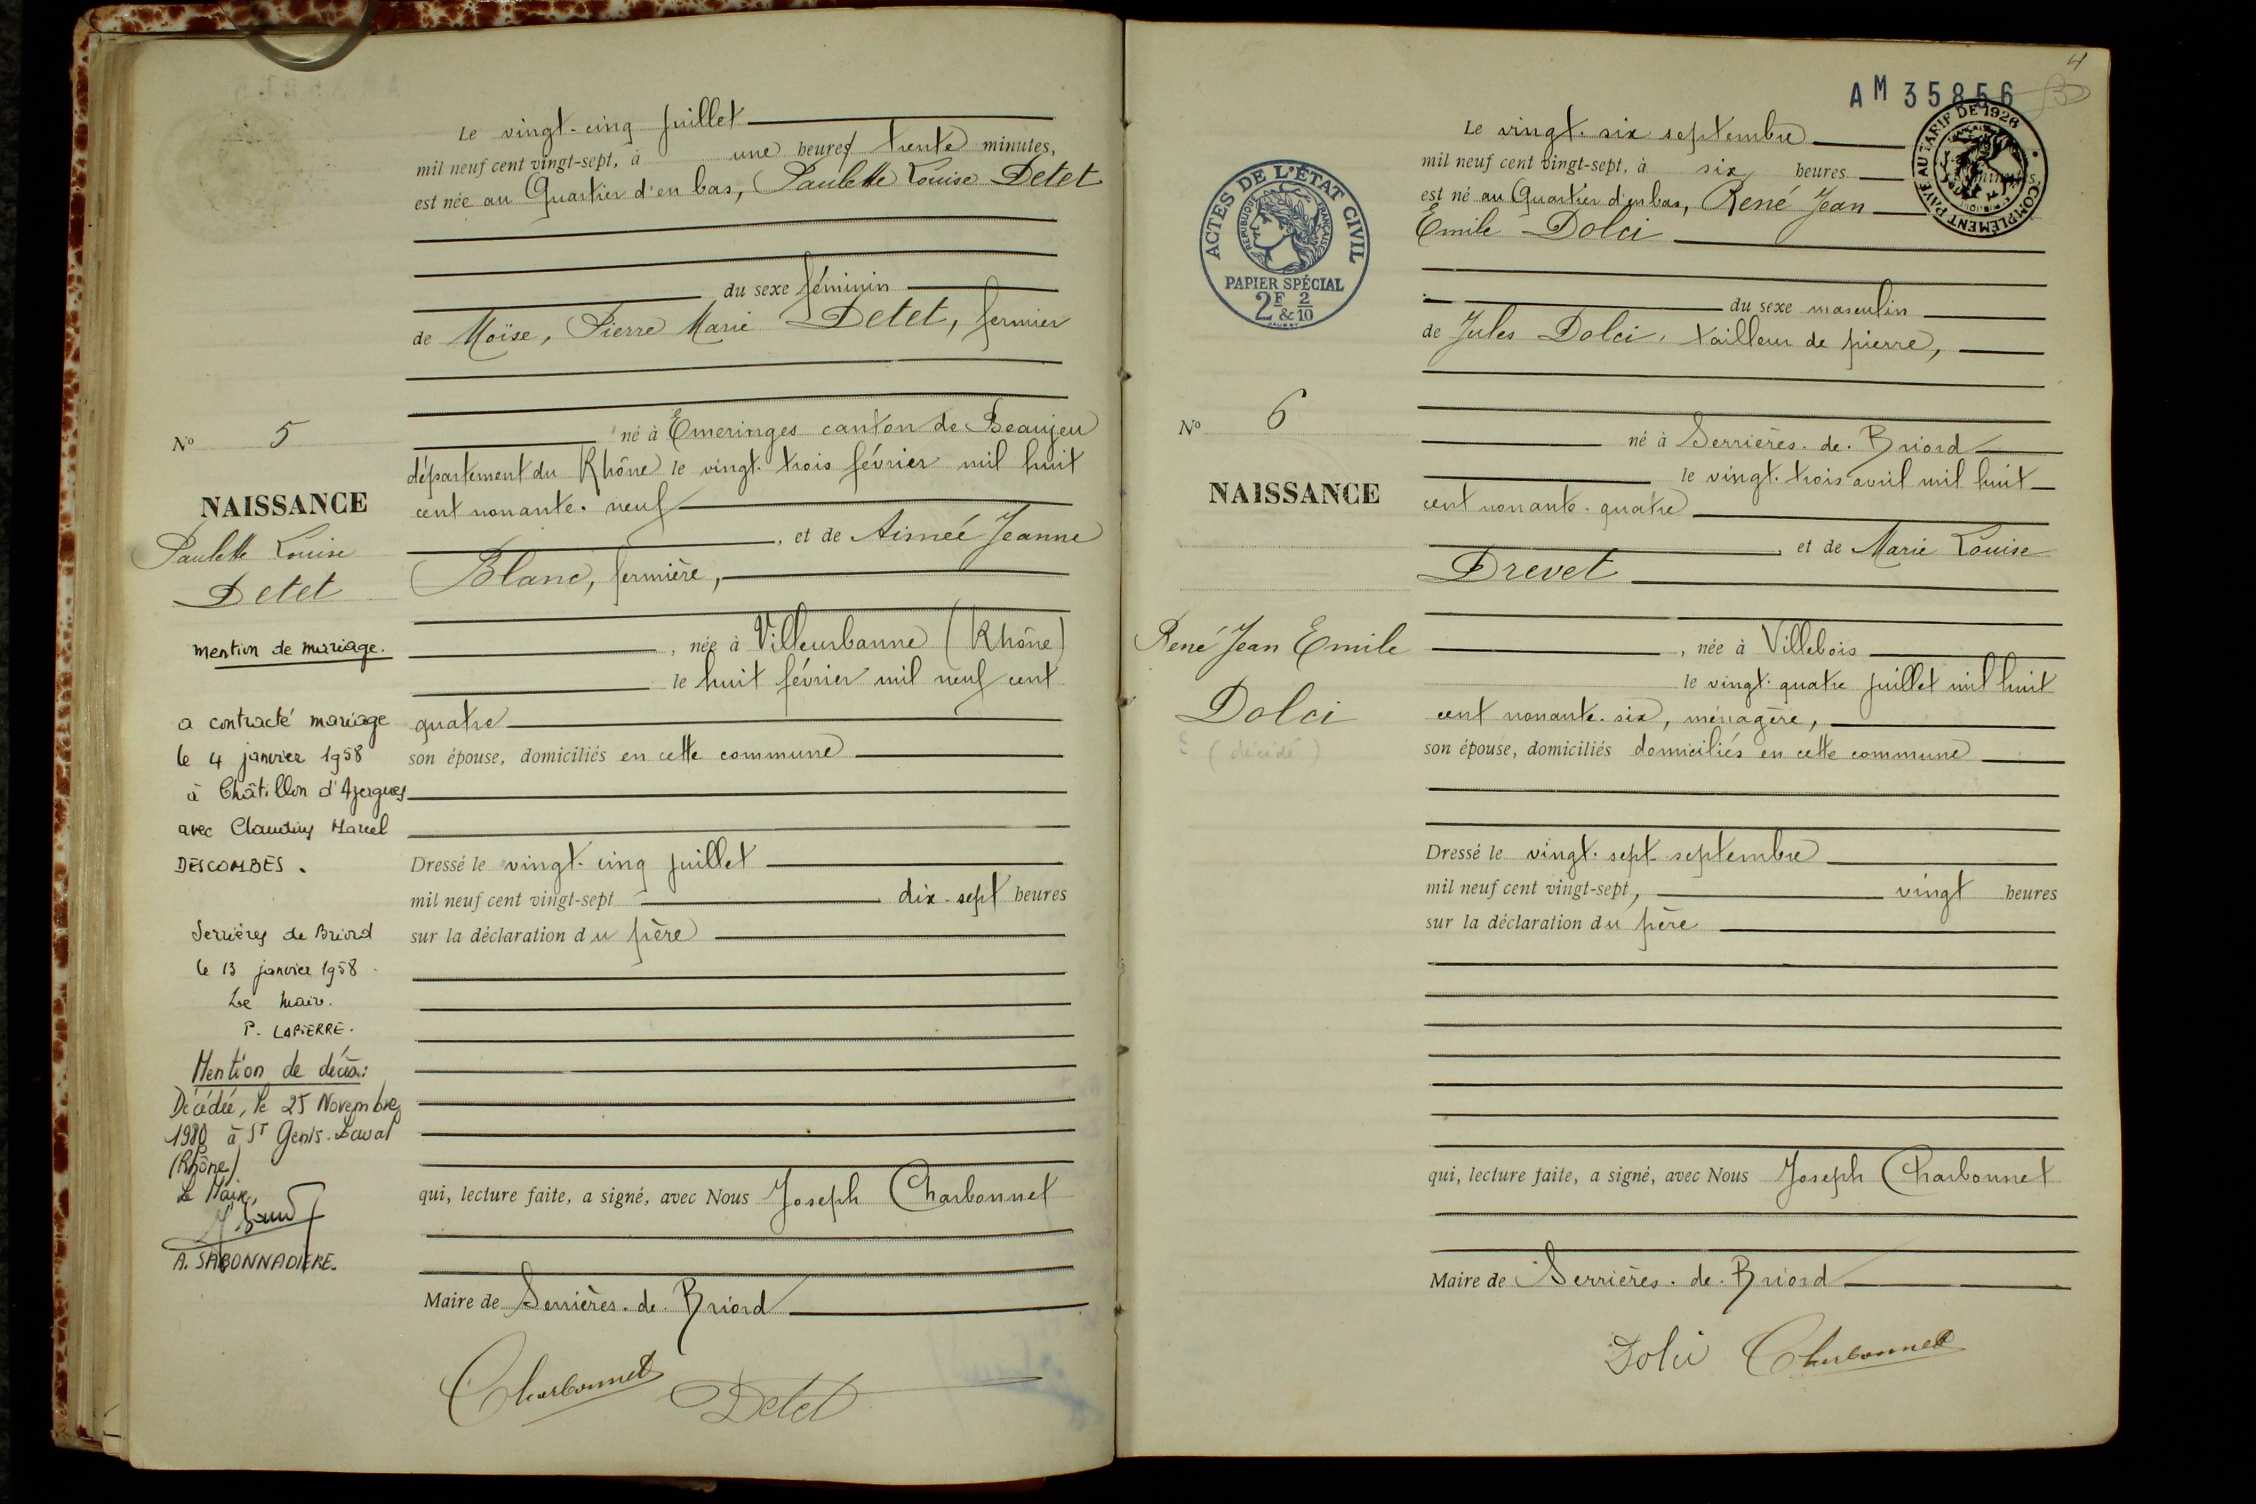 Le vingt-cinq juillet
mil neuf cent vingt-sept, à une heures trente minutes,
est née au Quartier d'en bas, Paulette Louise Detet
du sexe féminin
de Moïse, Pierre Marie Detet, fermier
né à Emeringes canton de Beaujeu
département du Rhône le vingt-trois février mil huit
cent nonante-neuf
, et de Aimée Jeanne
Blanc, fermière,
, née à Villeurbanne (Rhône)
le huit février mil neuf cent
quatre
son épouse, domiciliés en cette commune
Dressé le vingt-cinq juillet
mil neuf cent vingt-sept dix-sept heures
sur la déclaration du père
qui, lecture faite, a signé, avec Nous Joseph Charbonnet
Maire de Serrières-de-Briord
Charbonnet Detet
No 5
NAISSANCE
Paulette Louise
Detet
mention de mariage.
a contracté mariage
le 4 janvier 1958
à Châtillon d'Azergues
avec Claudius Marcel
DESCOMBES.
Serrières de Briord
le 13 janvier 1958.
Le Maire.
P. LAPIERRE.
Mention de décès:
Décédée, le 25 Novembre
1980 à St Genis-Laval
(Rhône)
Le Maire,
A. SABONNADIERE.
4
AM 35856
COMPLÉMENT PAYÉ AU TARIF DE 1926
ACTES DE L'ÉTAT CIVIL
RÉPUBLIQUE FRANÇAISE
PAPIER SPÉCIAL
2F & 2/10
Le vingt-six septembre
mil neuf cent vingt-sept, à six heures minutes,
est né au Quartier d'en bas, René Jean
Emile Dolci
du sexe masculin
de Jules Dolci, tailleur de pierre,
né à Serrières-de-Briord
le vingt-trois avril mil huit
cent nonante-quatre
et de Marie Louise
Drevet
, née à Villebois
le vingt-quatre juillet mil huit
cent nonante-six, ménagère,
son épouse, domiciliés domiciliés en cette commune
Dressé le vingt-sept septembre
mil neuf cent vingt-sept, vingt heures
sur la déclaration du père
qui, lecture faite, a signé, avec Nous Joseph Charbonnet
Maire de Serrières-de-Briord
Dolci Charbonnet
No 6
NAISSANCE
René Jean Emile
Dolci
(décédé)